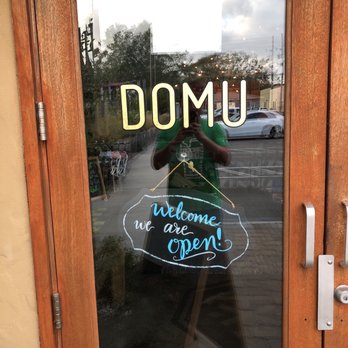 DOMU
welcome
we are
open!